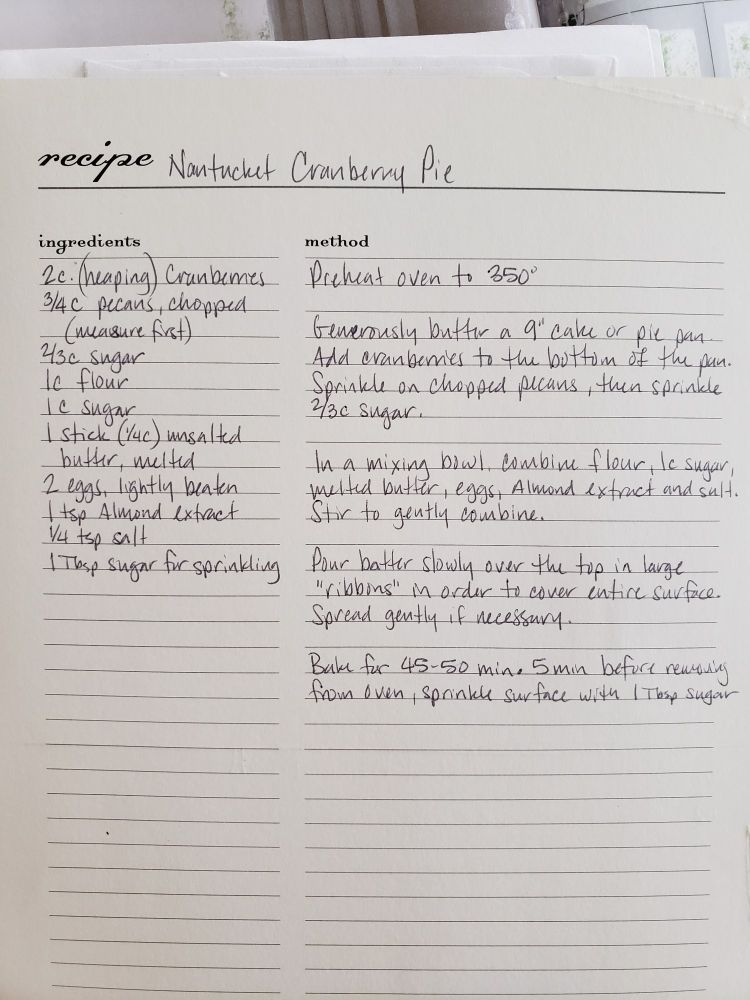 recipe Nantucket Cranberry Pie
ingredients
2c. (heaping) Cranberries
3/4 c pecans, chopped
(measure first)
2/3c sugar
1c flour
1c sugar
1 stick (1/4c) unsalted
butter, melted
2 eggs, lightly beaten
1 tsp Almond extract
1/4 tsp salt
1 Tbsp sugar for sprinkling
method
Preheat oven to 350°
Generously butter a 9" cake or pie pan.
Add cranberries to the bottom of the pan.
Sprinkle on chopped pecans, then sprinkle
2/3c sugar.
In a mixing bowl, combine flour, 1c sugar,
melted butter, eggs, Almond extract and salt.
Stir to gently combine.
Pour batter slowly over the top in large
"ribbons" in order to cover entire surface.
Spread gently if necessary.
Bake for 45-50 min. 5 min before removing
from oven, sprinkle surface with 1 Tbsp sugar